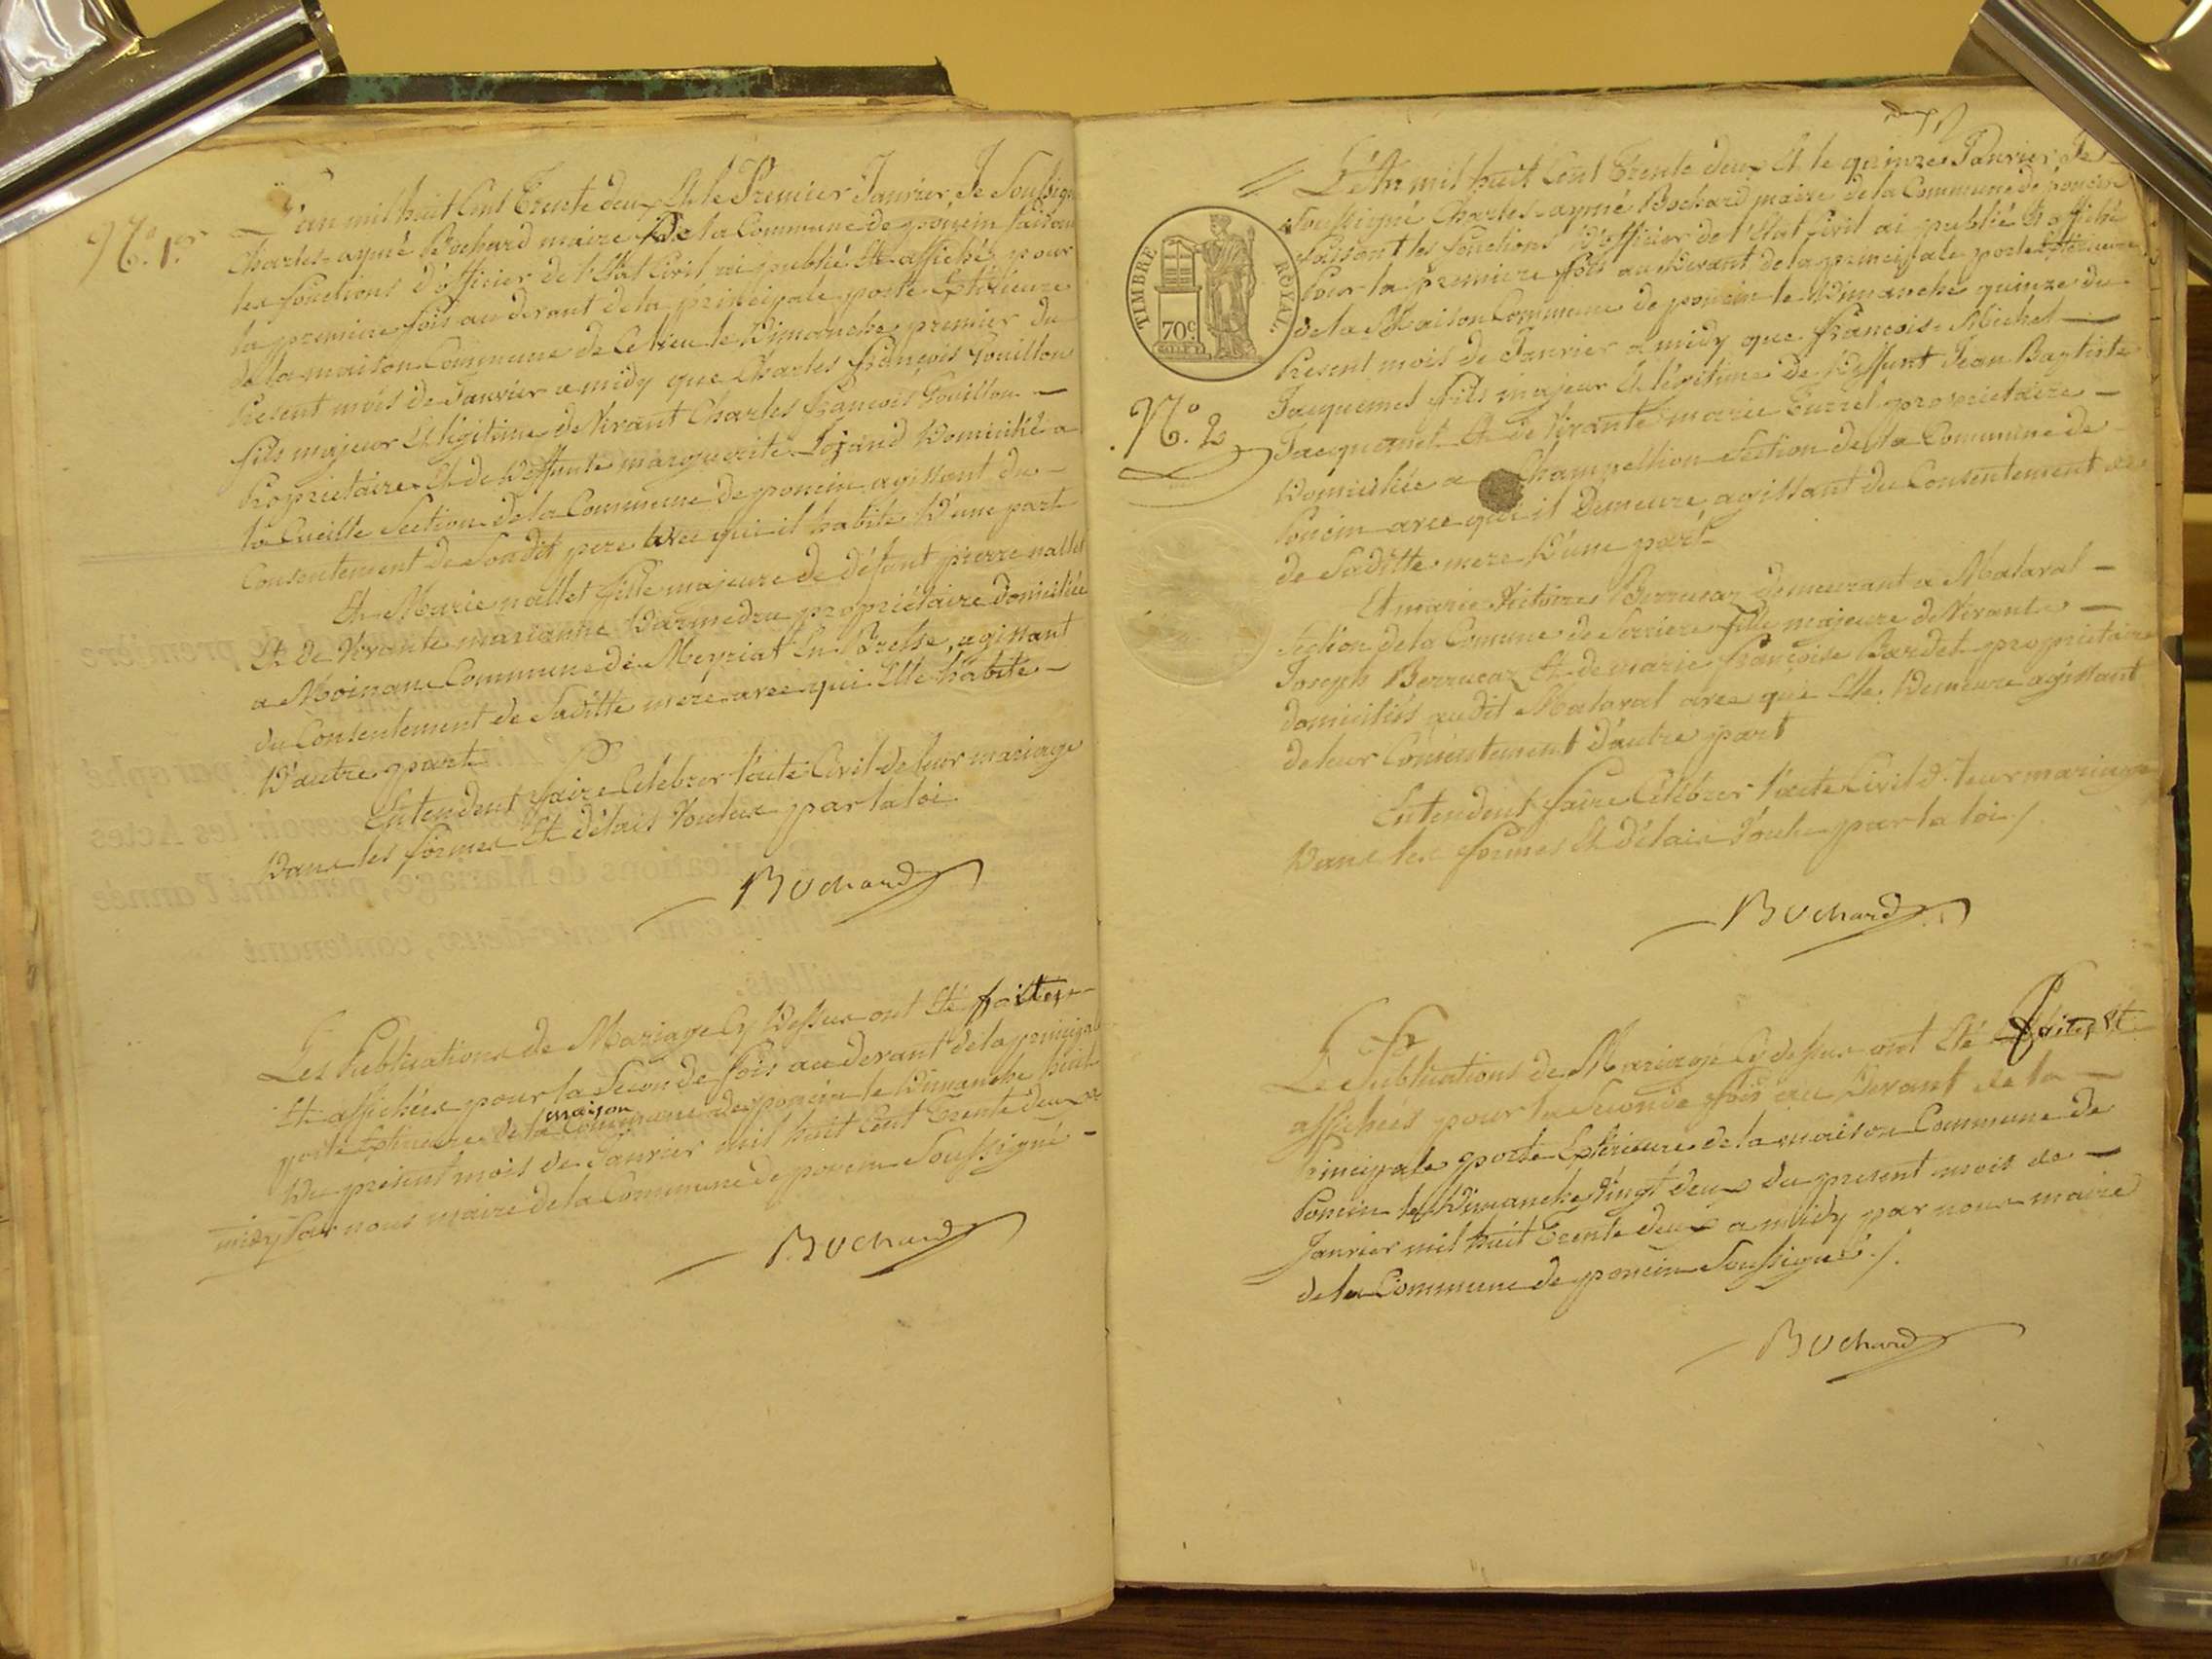 N.° 1.er
L'an mil huit Cent Trente deux Et le Premier Janvier, Je Soussigné
Charles-aymé Bochard maire De la Commune de poncin faisant
les fonctions d'officier de l'Etat Civil ai publié Et affiché pour
la premiere fois au devant de la principale porte Extérieure
de la maison Commune de Ce lieu le Dimanche premier du
Present mois de Janvier a midy que Charles françois Gouillon
fils majeur Et légitime de Vivant Charles françois Gouillon —
Propriétaire Et de Deffunte marguerite Domicilié a
la Cueille Section de la Commune de poncin agissant du —
Consentement de Son dit pere avec qui il habite D'une part
Et Marie nallet fille majeure de défunt pierre nallet
Et de Vivante marianne Darmedru propriétaire domiciliée
a Moinans Commune de Meyriat En Bresse, agissant
du Consentement de Saditte mere avec qui Elle habite —
D'autre part.
Entendent faire Célébrer l'acte Civil de leur mariage
Dans les formes Et délais Voulus par la loi
Bochard
Les Publications de Mariage Cy Dessus ont Eté faites
Et affichées pour la Seconde fois au devant de la principale
porte Extérieure de la maison Commune de poncin le Dimanche huit
Du présent mois de Janvier mil huit Cent Trente deux a
midy Par nous maire de la Commune de poncin Soussigné —
Bochard
TIMBRE ROYAL.
70c
N.° 2
L'An mil huit Cent Trente deux Et le quinze Janvier, Je
Soussigné Charles-aymé Bochard maire de la Commune de poncin
faisant les fonctions d'officier de l'Etat Civil ai publié Et affiché
Pour la premiere fois au Devant de la principale porte Extérieure
de la Maison Commune de poncin le Dimanche quinze du
Présent mois de Janvier a midy que françois-Michel —
Jacquemet fils majeur Et légitime de Deffunt Jean Baptiste
Jacquemet Et de Vivante marie Turrel propriétaire —
Domiciliée a Champeillon Section de la Commune de
Poncin avec qui il Demeure, agissant du Consentement
de Saditte mere D'une part
Et marie Victoire Berrucaz demeurant a Malaval —
Section de la Comune de Serriere fille majeure de Vivants —
Joseph Berrucaz Et de marie françoise Bardet propriétaires
domiciliés audit Malaval avec qui Elle Demeure agissant
de leur Consentement d'autre part
Entendent faire Célébrer l'acte Civil de leur mariage
Dans les formes Et Délais Voulu par la loi /.
Bochard
Les Publications de Mariage Cy dessus ont Eté faites Et
affichées pour la Seconde fois au Devant de la —
Principale porte Extérieure de la maison Commune de
Poncin le Dimanche Vingt deux du present mois de —
Janvier mil huit Trente deux a midy par nous maire
de la Commune de poncin Soussigné /.
Bochard